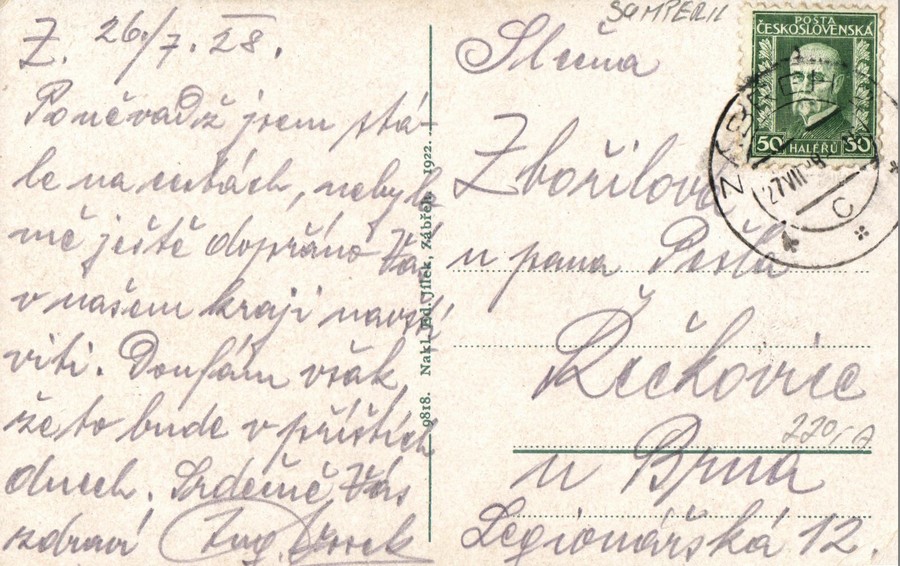 Z. 26./7. 28.
Poněvadž jsem stá-
le na cestách, nebylo
mě ještě dopřáno Vás
v našem kraji navští-
viti. Doufám však,
že to bude v příštích
dnech. Srdečně Vás
zdraví Aug.
9818. Nakl. Ed. Jílek, Zábřeh 1922.
ŠUMPERK
POŠTA
ČESKOSLOVENSKÁ
50 HALÉŘŮ 50
27 VII
Slečna
Zbořilova
u pana Pešla
Řečkovice
u Brna
Legionářská 12.